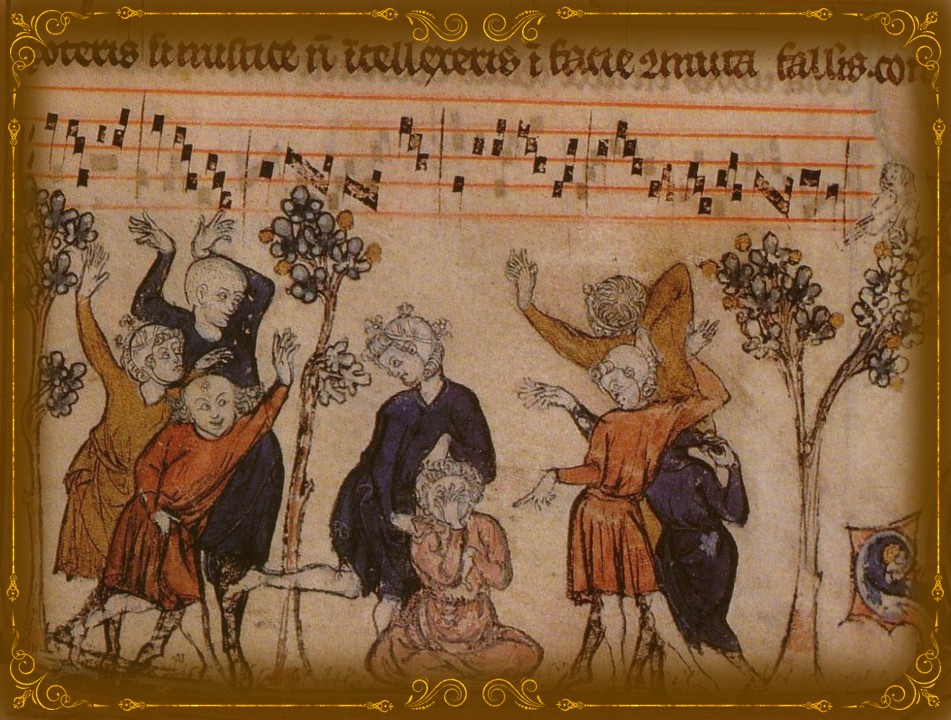 oteris si mistice n̄ ītellexeris ī facie ꝯmuta fallis.co